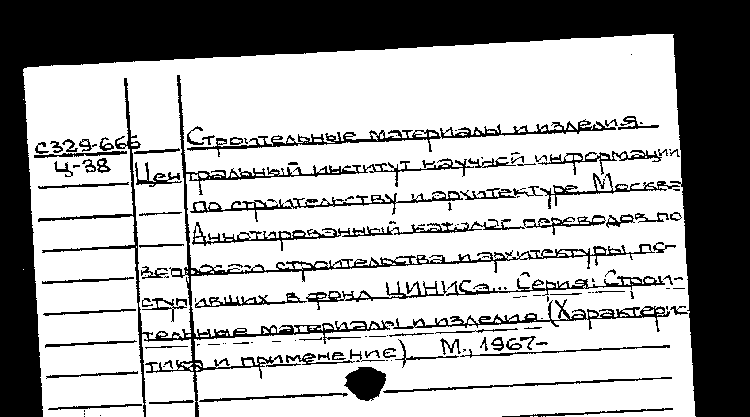 С329-666
Ц-38
Строительные материалы и изделия.
Центральный институт научной информации
по строительству и архитектуре. Москва
Аннотированный каталог переводов по
вопросам строительства и архитектуры, по-
ступивших в фонд ЦИНИСа... Серия: Строи-
тельные материалы и изделия (Характерис-
тика и применение). М., 1967-